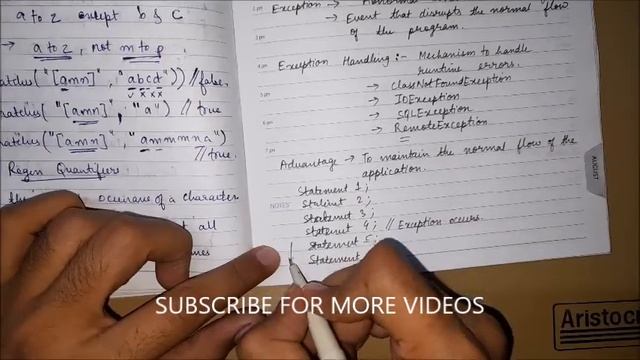 a to z except b & c
→ a to z, not m to p
matches("[amn]", "abcd")) // false
matches("[amn]", "a") // true
matches("[amn]", "ammmna")
// true.
Regex Quantifiers
the occurance of a character
all
times
2 pm
Exception →
→ Event that disrupts the normal flow
of the program.
4 pm
Exception Handling :- Mechanism to handle
runtime errors.
5 pm
→ ClassNotFoundException
→ IOException
6 pm
→ SQLException
→ RemoteException
7 pm
Advantage → To maintain the normal flow of the
application.
AUGUST
Statement 1;
NOTES
Statement 2;
Statement 3;
Statement 4; // Exception occurs.
Statement 5;
Statement
SUBSCRIBE FOR MORE VIDEOS
Aristoc